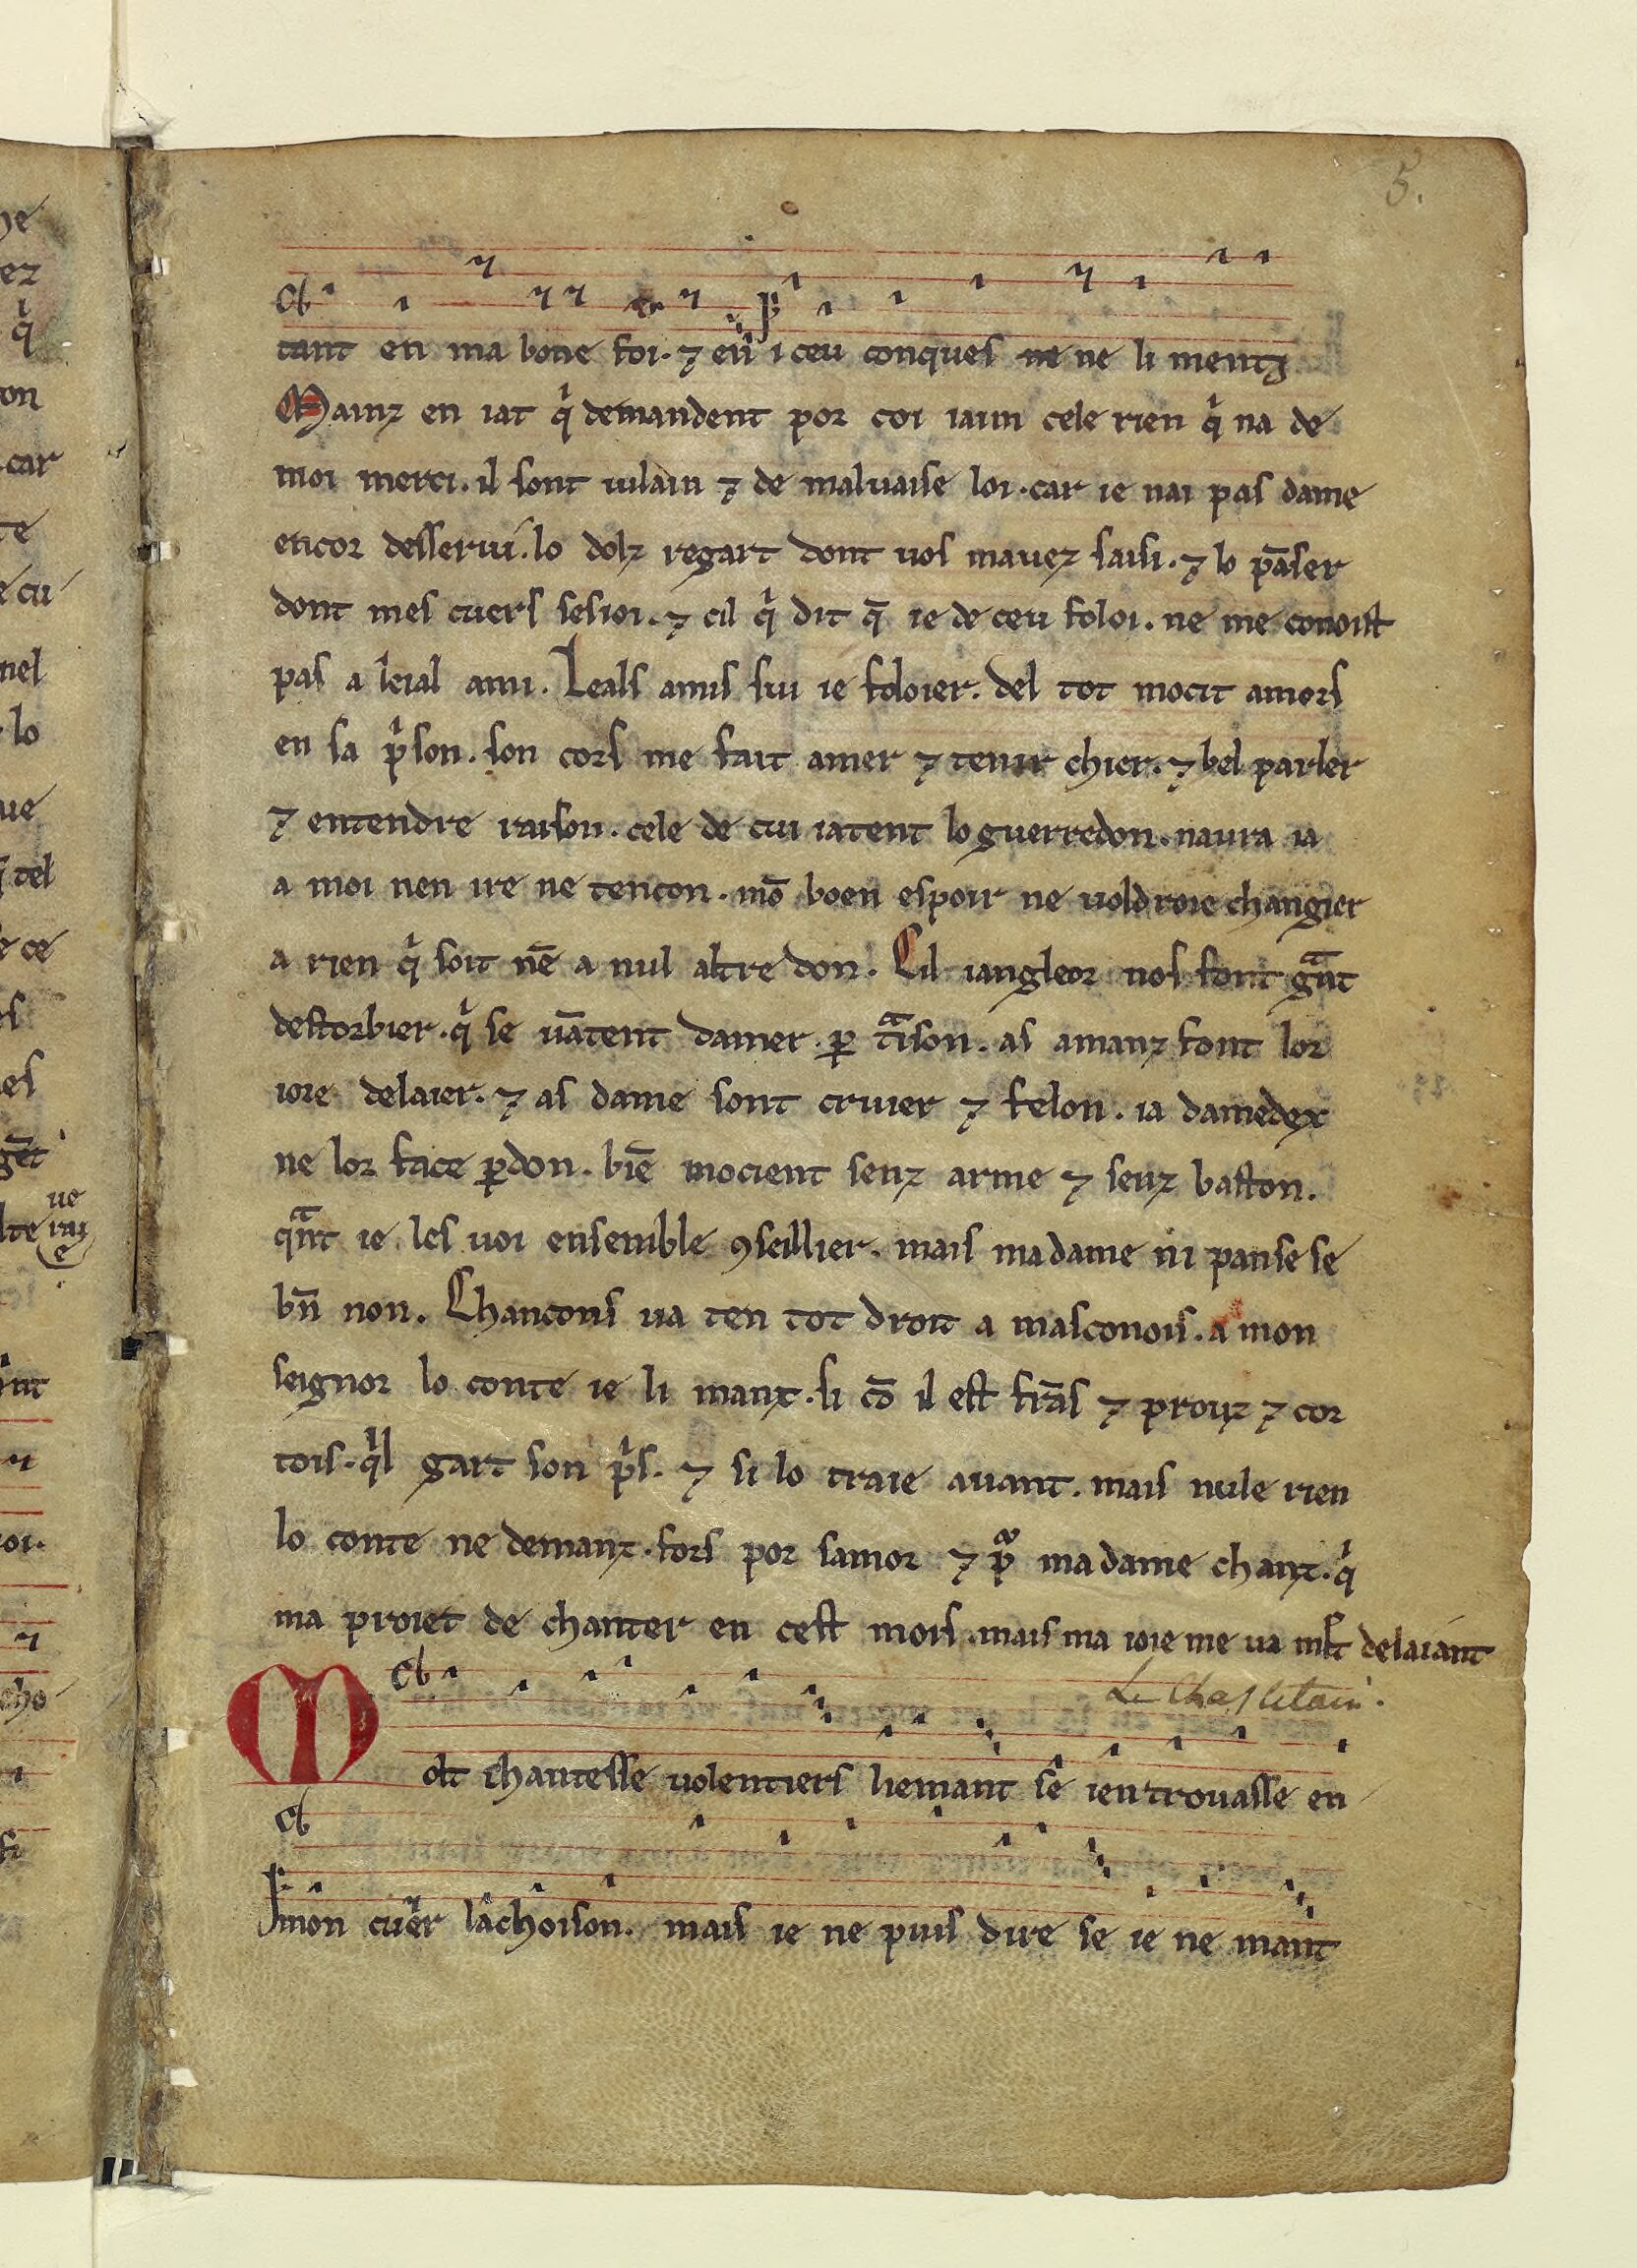 5.
tant en ma bone foi. ⁊ eñ i ceu conques ne ne li mentj
Mainz en iat q̍ demandent por coi iaim cele rien q̍ na de
moi merci. il sont uilain ⁊ de maluaise loi. car ie nai pas dame
encor desserui. lo dolz regart dont uos mauez saisi. ⁊ lo pāser
dont mes cuers sesioi. ⁊ cil q̍ dit q̄ ie de ceu foloi. ne me conoist
pas a leial ami. Leals amis sui ie foloier. del tot mocit amors
en sa p̍son. son cors me fait amer ⁊ tenir chier. ⁊ bel parler
⁊ entendre raison. cele de cui iatent lo guerredon. naura ia
a moi nen ire ne tencon. mō boen espoir ne uoldroie changier
a rien q̍ soit nē a nul altre don. Cil iangleor nos font gᵃnt
destorbier. q̍ se uātent damer. ꝑ tᵃison. as amanz font lor
ioie delaier. ⁊ as dame sont cruier ⁊ felon. ia damedex
ne lor face ꝑdon. biē mocient senz arme ⁊ senz baston.
qᵃnt ie les uoi ensemble ꝯseillier. mais ma dame ni panse se
bn̄ non. Chancons ua ten tot droit a masconois. a mon
seignor lo conte ie li mant. si cō il est frās ⁊ prouz ⁊ cor
tois. q̍l gart son p̍s. ⁊ si lo traie auant. mais nule rien
lo conte ne demant. fors por samor ⁊ pᵒ ma dame chant. q̍
ma proiet de chanter en cest mois. mais ma ioie me ua ml̄t delaiant
Le Chastelain.
Molt chantesse uolentiers liemant sē ien trouasse en
mon cuer lachoison. mais ie ne puis dire se ie ne mant